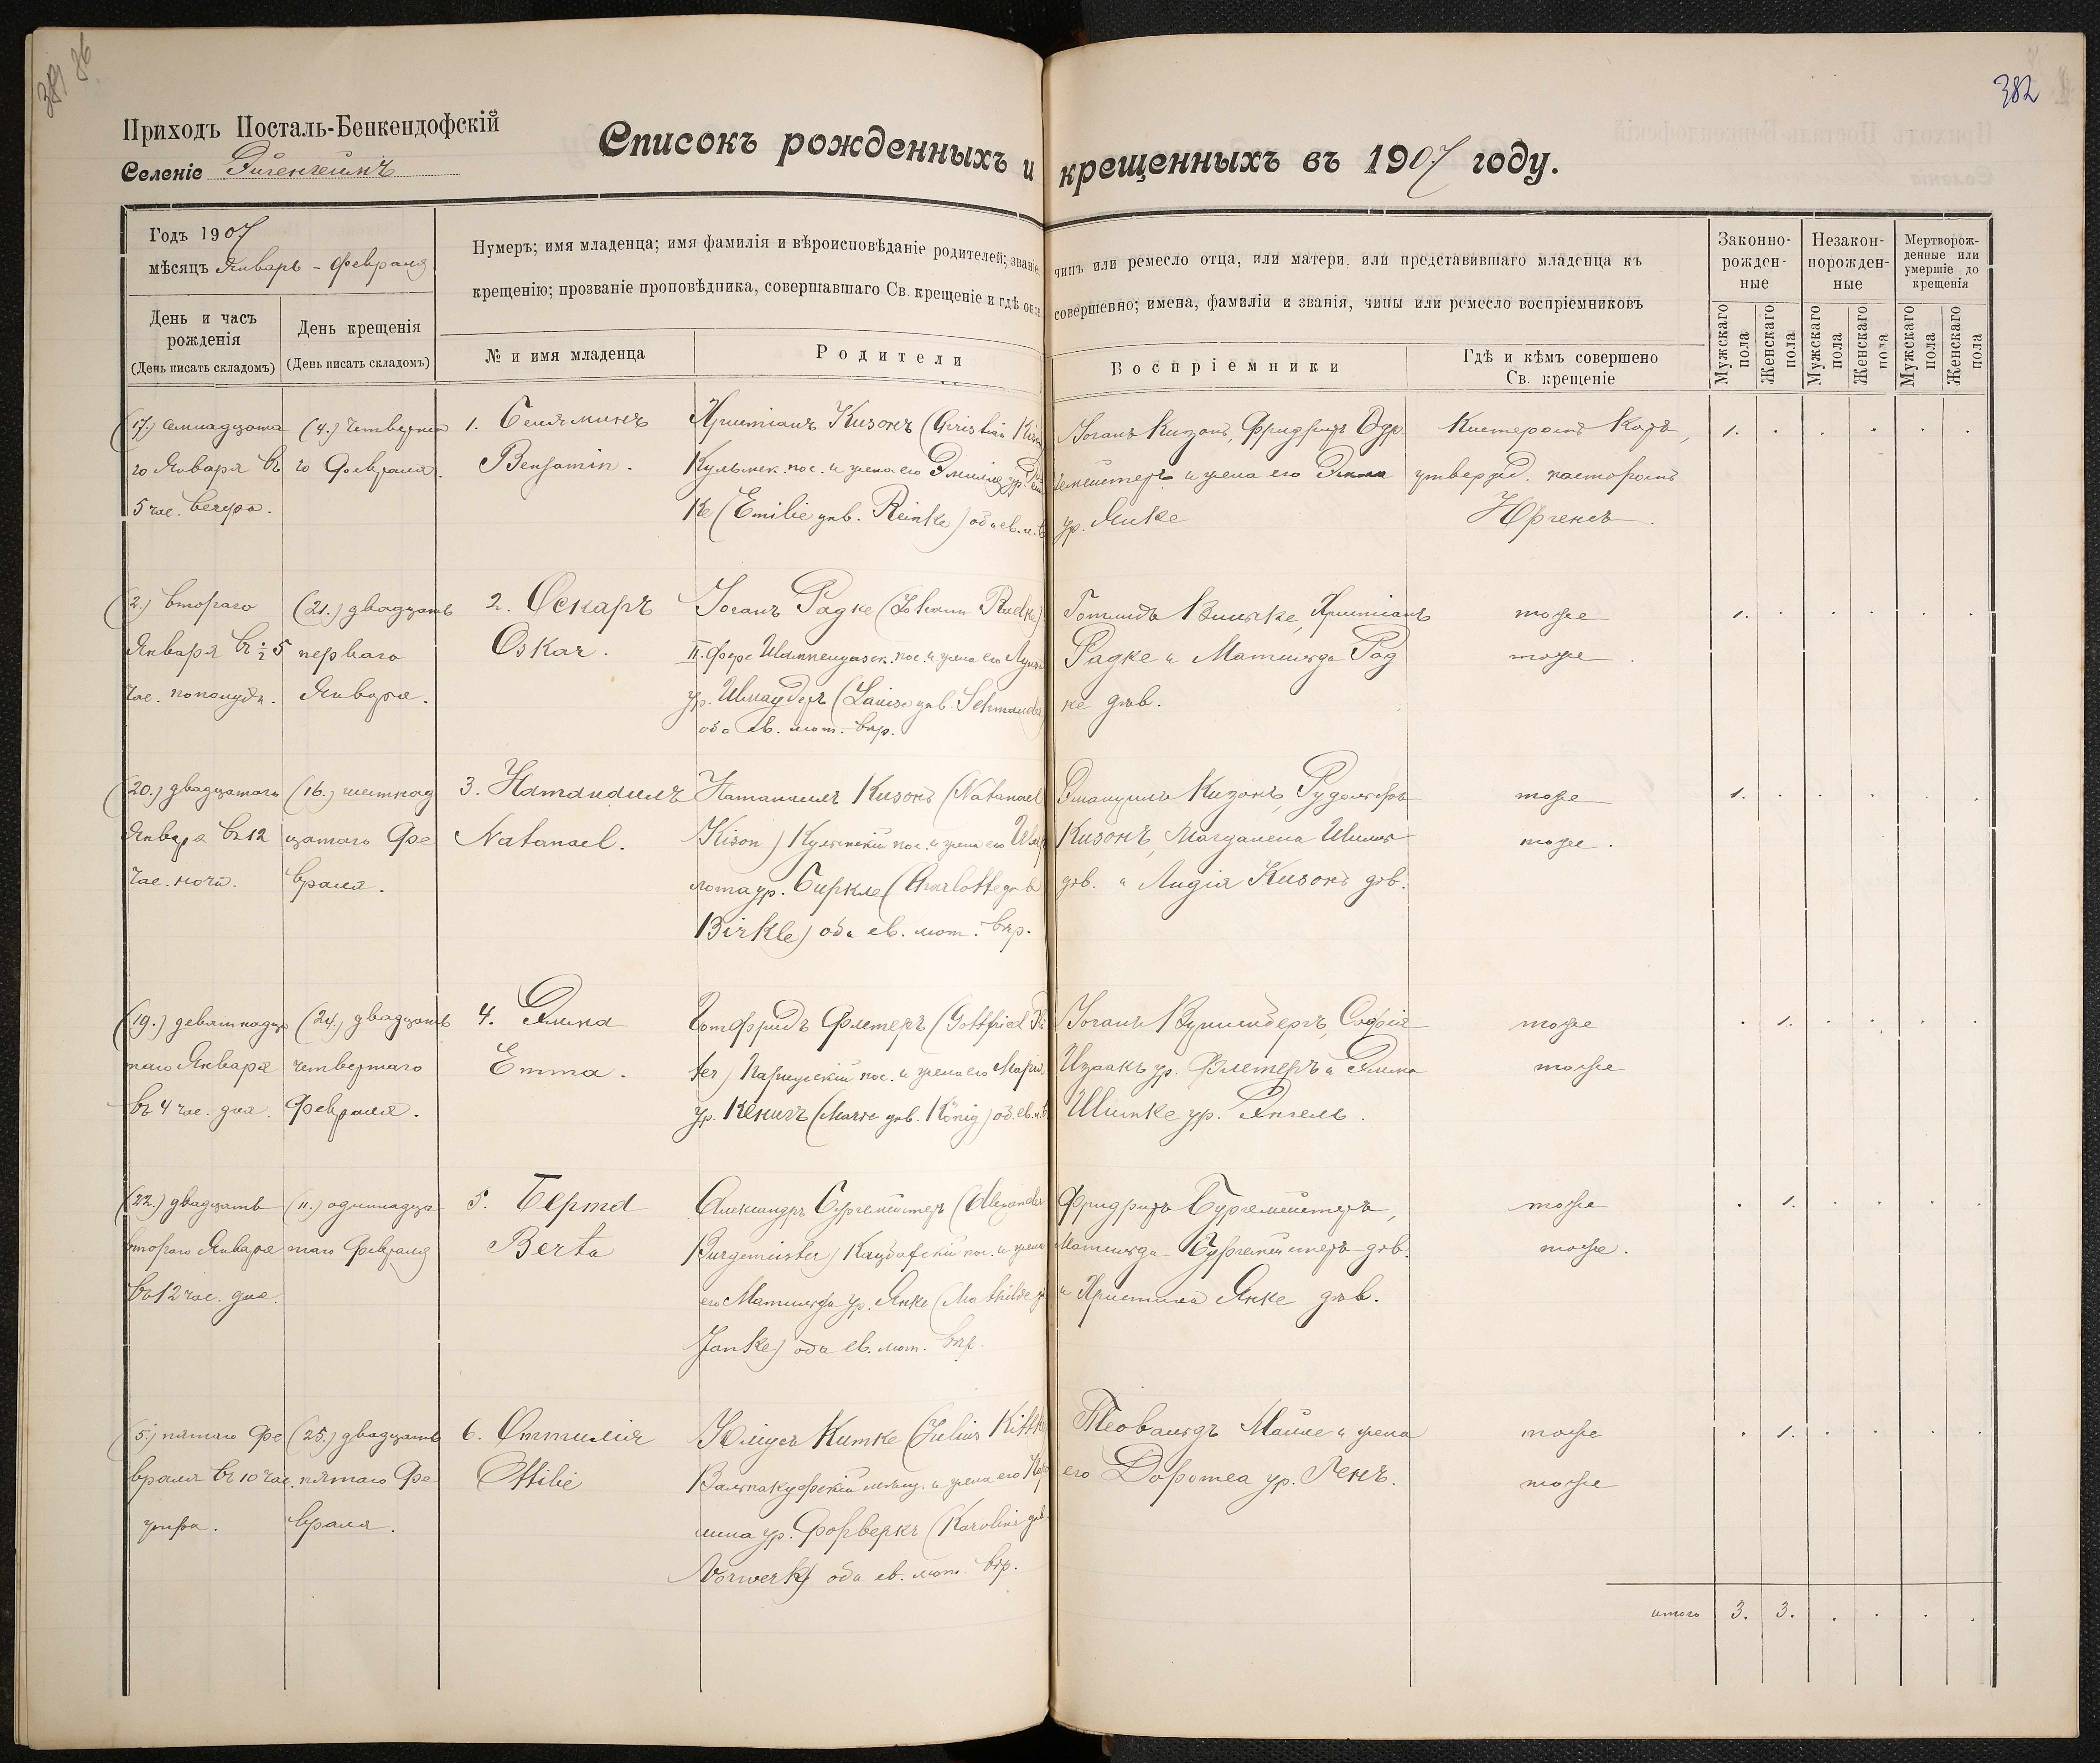 381 86
382
Приходъ Посталь-Бенкендофскій
Селеніе Эйгенгеймъ
Списокъ рожденныхъ и крещенныхъ въ 1907 году.
Годъ 1907
мѣсяцъ Январь - Февраля
День и часъ рожденія
(День писать складомъ)
День крещенія
(День писать складомъ)
Нумеръ; имя младенца; имя фамилія и вѣроисповѣданіе родителей; званіе,
чинъ или ремесло отца, или матери, или представившаго младенца къ
крещенію; прозваніе проповѣдника, совершавшаго Св. крещеніе и гдѣ оное
совершенно; имена, фамиліи и званія, чины или ремесло воспріемниковъ
№ и имя младенца
Родители
Воспріемники
Гдѣ и кѣмъ совершено
Св. крещеніе
Законно-
рожден-
ные
Незакон-
норожден-
ные
Мертворож-
денные или
умершіе до
крещенія
Мужскаго пола
Женскаго пола
Мужскаго пола
Женскаго пола
Мужскаго пола
Женскаго пола
(17.) семнадцата
го Января въ
5 час. вечера.
(4.) четверта
го Февраля.
1. Беньяминъ
Benjamin.
Христіанъ Кизонъ (Christian Kison
Кульмск. пос. и жена его Эмилія ур. Рейн
ке (Emilie geb. Reinke) оба ев. л. в
Іоганъ Кизонъ, Фридрихъ
и жена его
ур. Янке
Кистеромъ Катъ,
утвержд. пасторомъ
Юргенсъ.
1. . . . . .
(2.) втораго
Января въ ½ 5
час. пополудн.
(21.) двадцать
перваго
Января.
2. Оскаръ
Oskar.
Іоганъ Радке (Johann Radke)
II. Фере Шампенуазск. пос. и жена его Луиза
ур. Шмаудеръ (Louise geb. Schmauder
оба ев. лют. вѣр.
Готлибъ Винске, Христіанъ
Радке и Матильда Рад
ке дѣв.
тоже
тоже.
1. . . . . .
(20.) двадцатаго
Января въ 12
час. ночи.
(16.) шестнад
цатаго Фе
враля.
3. Натанаилъ
Natanael.
Натанаилъ Кизонъ (Natanael
Kison) Кульмскій пос. и жена его Шар
лота ур. Биркле (Charlotte geb
Birkle) оба ев. лют. вѣр.
Эмануилъ Кизонъ, Рудольфъ
Кизонъ, Магдалена
дѣв. и Лидія Кизонъ дѣв.
тоже
тоже.
1. . . . . .
(19.) девятнадца
таго Января
въ 4 час. дня.
(24.) двадцать
четвертаго
Февраля.
4. Эмма
Emma.
Готфридъ Флетеръ (Gottfried Flä
ter) Парижскій пос. и жена его Марія
ур. Кенигъ (Marie geb. König) об. ев. л. в
Іоганъ Вунибергъ, Софія
Изаакъ ур. Флетеръ и Эмма
Шимке ур. Энгель.
тоже
тоже
. 1. . . . .
(22.) двадцать
втораго Января
въ 12 час. дня.
(11.) одиннадца
таго Февраля
5. Берта
Berta
Александръ Бургемейстеръ (Alexander
Burgemeister) Кацбахскій пос. и жена
его Матильда ур. Янке (Mathilde g
Janke) оба ев. лют. вѣр.
Фридрихъ Бургемейстеръ,
Матильда Бургемейстеръ дѣв.
и Христина Янке дѣв.
тоже
тоже.
. 1. . . . .
(5.) пятаго Фе
враля въ 10 час.
утра.
(25.) двадцать
пятаго Фе
враля.
6. Оттилія
Ottilie
Юліусъ Китке (Julius Kittke
мѣщ. и жена его Каро
лина ур. Форверкъ (Karoline geb.
Vorwerk) оба ев. лют. вѣр.
Теобальдъ Майле и жена
его Доротеа ур. Ленъ.
тоже
тоже
. 1. . . . .
итого 3. 3. . . . .